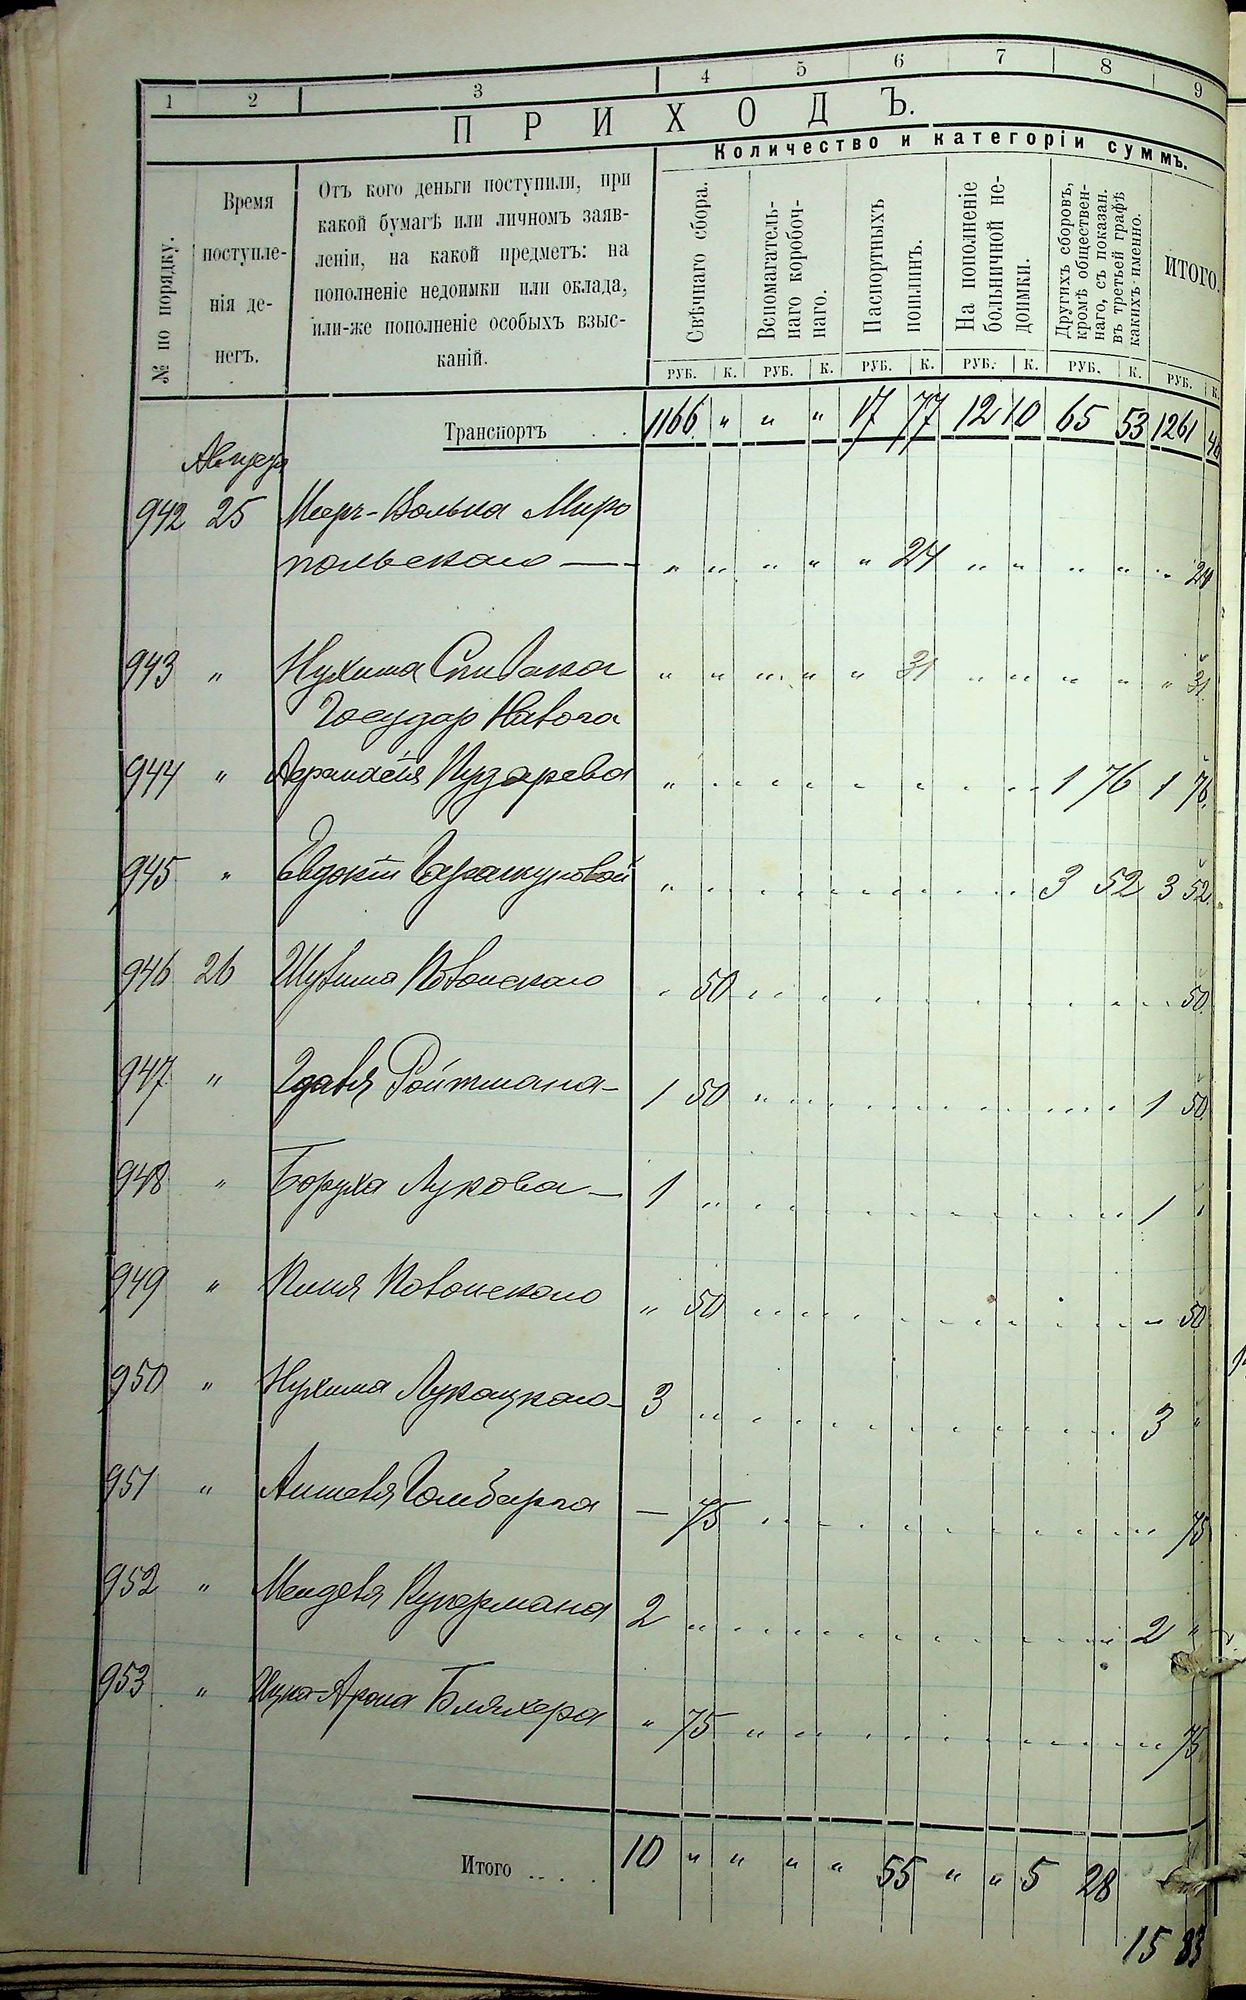 1 2 3 4 5 6 7 8 9
ПРИХОДЪ.
Количество и категоріи суммъ.
№ по порядку.
Время
поступле-
нія де-
негъ.
Отъ кого деньги поступили, при
какой бумагѣ или личномъ заяв-
леніи, на какой предметъ: на
пополненіе недоимки или оклада,
или-же пополненіе особыхъ взыс-
каній.
Свѣчнаго сбора.
Вспомагатель-
наго коробоч-
наго.
Паспортныхъ
пошлинъ.
На пополненіе
больничной не-
доимки.
Другихъ сборовъ,
кромѣ обществен-
наго, съ показан.
въ третьей графѣ
какихъ именно.
ИТОГО.
РУБ. К. РУБ. К. РУБ. К. РУБ. К. РУБ. К. РУБ. К.
Транспортъ . . 1166 " " " 17 77 12 10 65 53 1261
942 25 Меер-Волька Миро
польского — " " " " " 24 " " " " " 24
943 " Нухима Спивака " " " " " 31 " " " " " 31
944 " " 1 76 1 76
945 " Евдокіи " 3 52 3 52
946 26 " 50 50
947 " Ройтмана — 1 50 " 1 50
948 " Боруха Лукова — 1 " 1 "
949 " " 50 50
950 " Нухима Лукацкого — 3 " 3 "
951 " — 75 75
952 " Кукермана 2 " 2 "
953 " Бляхера " 75 " " 75
Итого . . . . 10 " " " " 55 " " 5 28
15 83